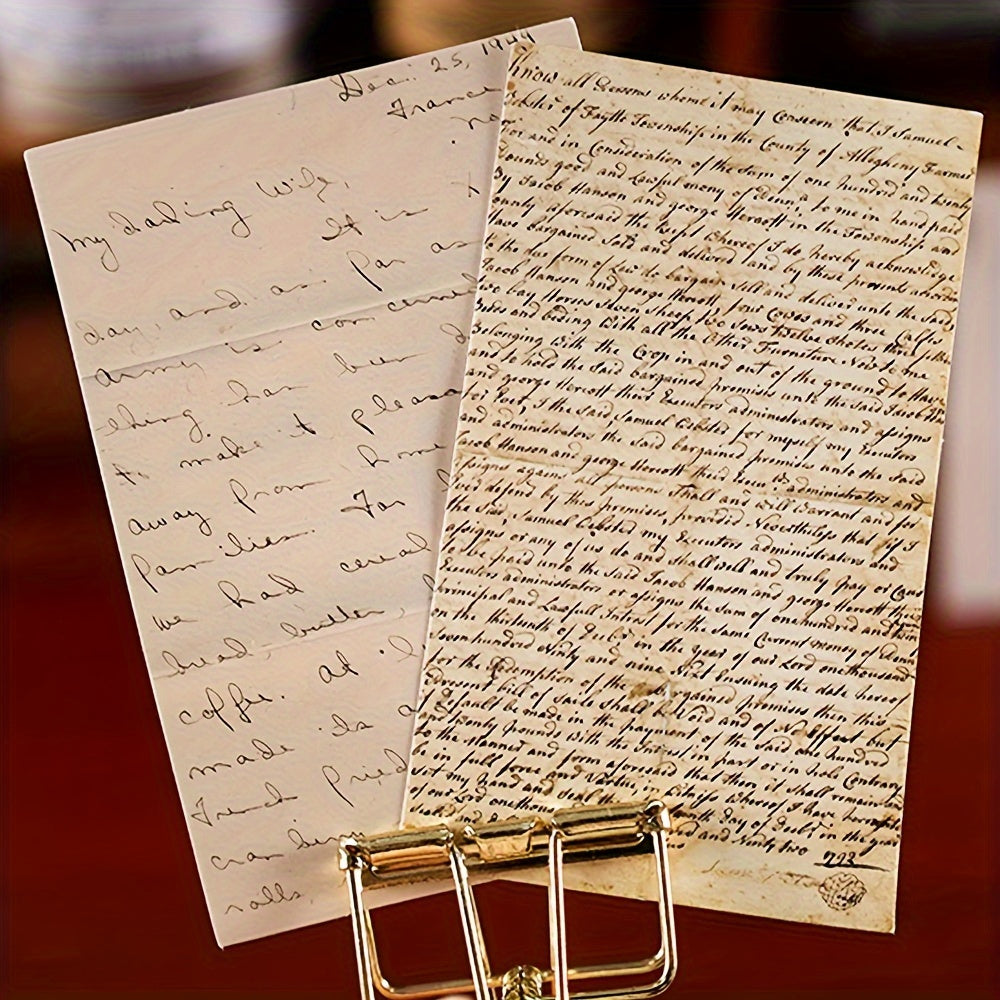 Dec. 25, 1944
France
My darling Wife,
It is
day, and as far as
army is concerned
thing has been
to make it pleasa
away from home
families. For
we had cereal
bread, butter,
coffee. At
made is a
French fried
cranberry
rolls.
Know all Persons whome it may Concern that I Samuel
of Faytte Township in the County of Allegheny Farmer
For and in Consideration of the Sum of one hundred and twenty
pounds good and Lawful money of Penn'a to me in hand paid
By Jacob Hanson and george Herott in the Township and
County aforesaid the recipt whereof I do hereby acknowledge
Have bargained Sold and delivered and by these presents according
to the due form of Law do bargain Sell and deliver unto the Said
Jacob Hanson and george Herott four Cowes and three
two bay Horses Seven Sheep two Sows twelve Shotes
Beds and beding with all the other Furniture Now to me
Belonging with the Crop in and out of the ground to Have
and to hold the Said bargained premises unto the Said Jacob
and george Herott their Executors administrators and assigns
for Ever, I the said, Samuel for myself my Executors
and administrators the Said bargained premises unto the Said
Jacob Hanson and george Herott their Execu's administrators and
assigns against all persons Shall and will Warrant and for
ever defend by this premises, provided Nevertheless that if I
the Said, Samuel my Executors administrators and
assigns or any of us do and Shall well and truly pay or Cause
to be paid unto the Said Jacob Hanson and george Herott their
Executors administrators or assigns the Sum of one hundred and
principal and Lawfull Intrest for the same Current money of
on the thirteenth of in the year of our Lord one thousand
Seven hundred Ninty and nine Next Ensuing the date hereof
for the Redemption of the bargained premises then this
present bill of Saile Shall be Void and of No Effect but
if default be made in the payment of the Said one hundred
and twenty pounds with the Intrest in part or in hole Contrary
to the Manner and form aforesaid that then it Shall remain
be in full force and Virtue, in witness whereof I have hereunto
set my hand and Seal the Day of in the year
of our Lord one thous and Ninty two 792